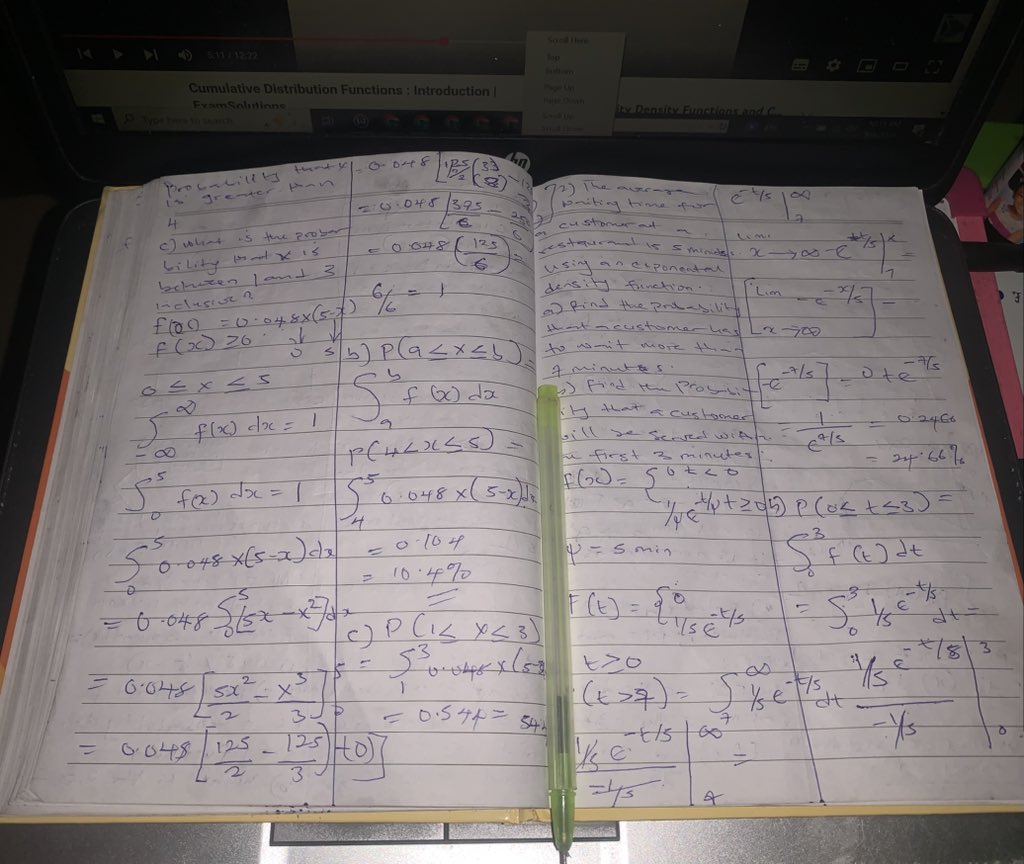 5:11 / 12:22
Scroll Here
Top
Bottom
Page Up
Page Down
Scroll Up
Scroll Down
Cumulative Distribution Functions : Introduction |
ExamSolutions
Density Functions and C
Type here to search
hp
Probability that x
is greater than
4
c) What is the proba
bility that x is
between 1 and 3
inclusive?
f(x) = 0.048x(5-x)
f(x) ≥ 0
0 5
0 ≤ x ≤ 5
∫_{-∞}^{∞} f(x) dx = 1
∫_0^5 f(x) dx = 1
∫_0^5 0.048x(5-x)dx
= 0.048 ∫_0^5 [5x - x²]dx
= 0.048 [5x²/2 - x³/3]_0^5
= 0.048 [(125/2 - 125/3) - (0)]
= 0.048 [125/2 (3/3) -
= 0.048 [375/6 -
= 0.048 (125/6) =
6/6 = 1
b) P(a ≤ x ≤ b) =
∫_a^b f(x) dx
P(4 < x ≤ 5) =
∫_4^5 0.048x(5-x)dx
= 0.104
= 10.4%
c) P(1 ≤ x ≤ 3)
= ∫_1^3 0.048x(5-
= 0.544 = 54
2) The average
waiting time for
a customer at a
restaurant is 5 minutes.
using an exponential
density function.
a) Find the probability
that a customer has
to wait more than
7 minutes.
b) Find the Probabi
lity that a customer
will be served within
first 3 minutes.
f(x) = { 0 t < 0
1/μ e^{-t/μ} t ≥ 0
μ = 5 min
F(t) = { 0
1/5 e^{-t/5}
t ≥ 0
(t > 7) = ∫_7^∞ 1/5 e^{-t/5} dt
1/5 e^{-t/5} / -1/5 |_7^∞ =
e^{-t/5} |_7^∞
lim x→∞ -e^{-t/5} |_7^x =
[lim x→∞ -e^{-x/5}] -
[-e^{-7/5}] = 0 + e^{-7/5}
= 1/e^{7/5} = 0.2466
= 24.66%
b) P(0 ≤ t ≤ 3) =
∫_0^3 f(t) dt
= ∫_0^3 1/5 e^{-t/5} dt =
1/5 e^{-t/5} / -1/5 |_0^3